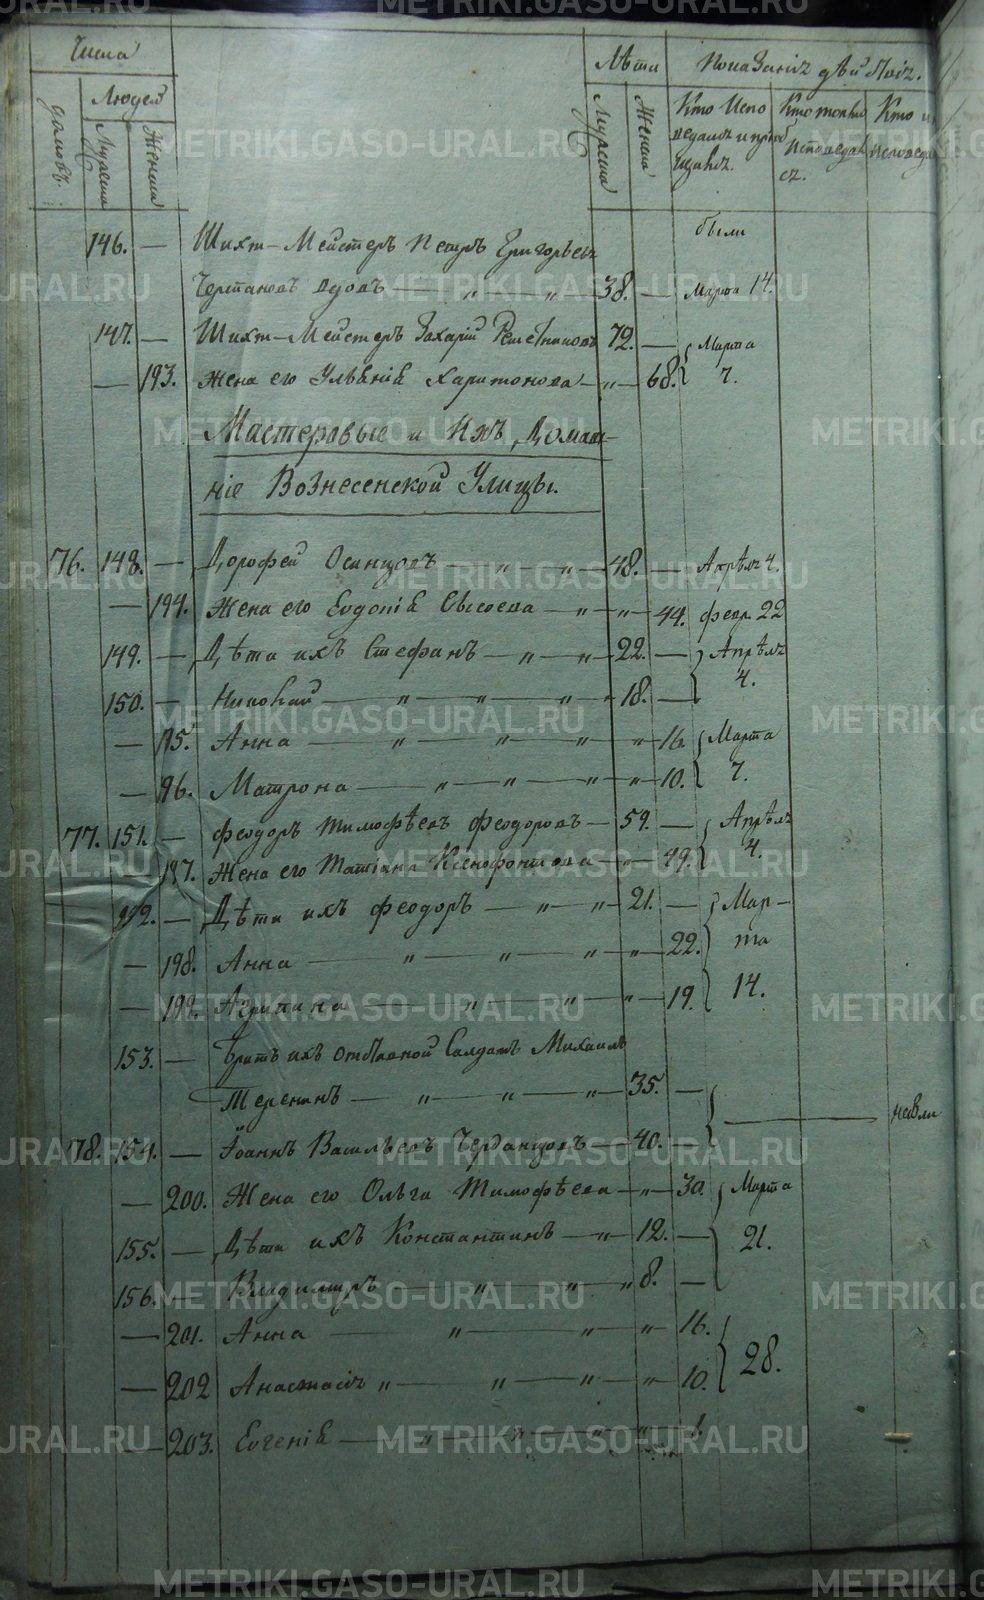 Числа
Людей
домовъ.
Мужеска
Женска
Лѣта
Мужеска
Женска
Показаніе дѣй
Кто Испо
ведалсѧ и приоб
щалсѧ.
Кто токмо
Исповедал
сѧ.
Кто н
исповеда
были
146. — Шихт-Мейстеръ Петръ Григорьевъ
вдовъ — " — " — 38. — Марта 14.
147. — Шихт-Мейстеръ Захарій Решетниковъ 72. — Марта
— 193. Жена его Ульѧніѧ Харитонова — " — 68. 7.
Мастеровые и Ихъ Домаш-
ніе Вознесенской Улицы.
76. 148. — Дорофей Осинцовъ — " — " — 48. — Апрѣлѧ 4.
— 194. Жена его Евдокіѧ Сысоева — " — " — 44. февр. 22
149. — Дѣти ихъ Стефанъ — " — " — 22. — Апрѣлѧ
150. — Николай — " — " — " — " 18. — 4.
— 195. Анна — " — " — " — " — 16. Марта
— 196. Матрона — " — " — " — " — 10. 7.
77. 151. — Феодоръ Тимофѣевъ Феодоровъ — 59. — Апрѣлѧ
197. Жена его Татіана Ксенофонтова — " — 49. 4.
152. — Дѣти ихъ Феодоръ — " — " — 21. — Мар-
— 198. Анна — " — " — " — " — 22. та
— 199. Агрипина — " — " — " — 19. 14.
153. — Братъ ихъ отставной Салдатъ Михаилъ
Теренинъ — " — " — " — 35. —
78. 154. — Іоаннъ Васильевъ Черданцовъ — 40. небыли
— 200. Жена его Ольга Тимофѣева — " — 30. Марта
155. — Дѣти ихъ Константинъ — " — 12. — 21.
156. — Владимиръ — " — " — " 8. —
— 201. Анна — " — " — " — 16.
— 202 Анастасіѧ " — " — " — " — 10. 28.
— 203. Евгеніѧ — " — " — " — "
METRIKI.GASO-URAL.RU